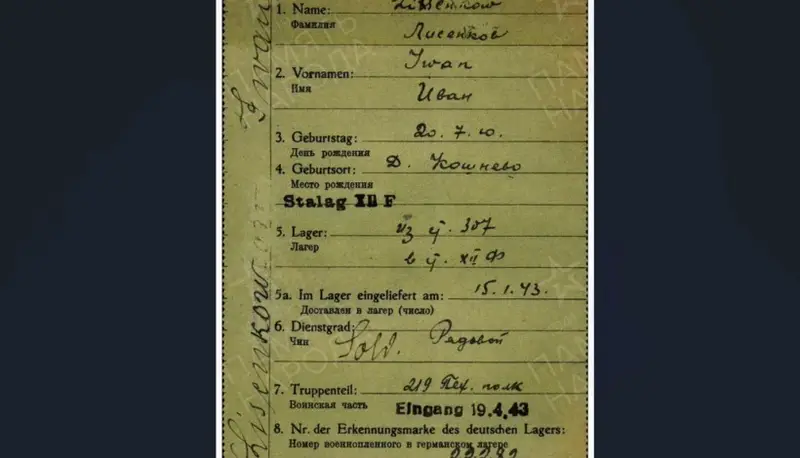 1. Name: Lissenkow
Фамилия Лисенков
Iwan
2. Vornamen:
Имя Иван
3. Geburtstag: 20. 7. 10.
День рождения
4. Geburtsort: Д. Кошнево
Место рождения
Stalag XII F
5. Lager: из ц. 307
Лагер
в ц. XII Ф
5a. Im Lager eingeliefert am: 15.1.43.
Доставлен в лагер (число)
6. Dienstgrad:
Чин Sold. Рядовой
7. Truppenteil: 219 Пех. полк
Воинская часть
Eingang 19.4.43
8. Nr. der Erkennungsmarke des deutschen Lagers:
Номер военнопленного в германском лагере
Lisenkow Iwan
ПАМЯТЬ НАРОДА